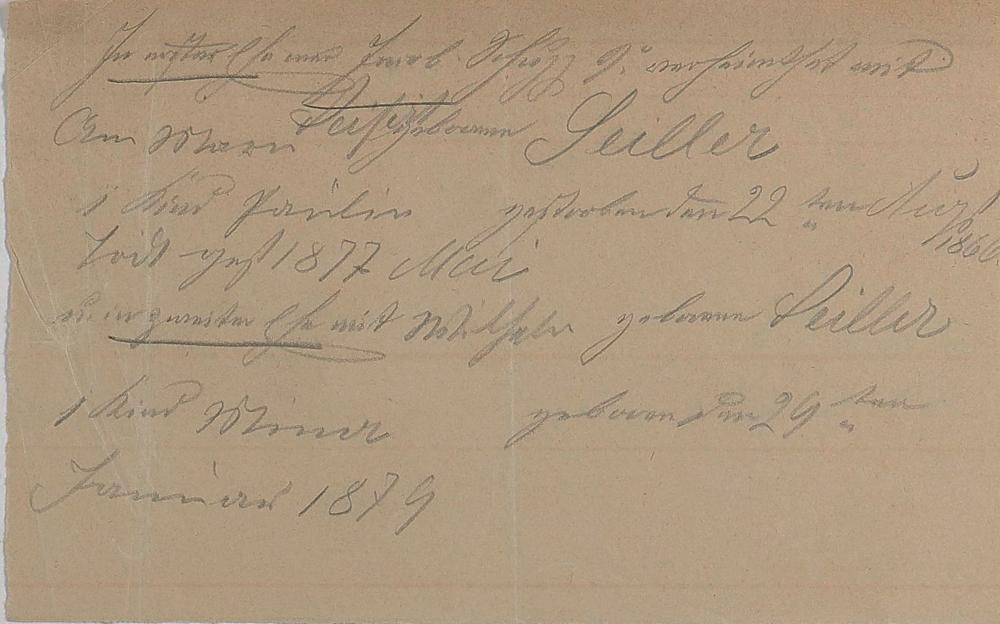 In erster Ehe war Jacob Schopp 9. verheirathet mit
Luise geborene Seiller
1 Kind Paulin gestorben den 22 ten Aug 1860
Todt gest 1877 Mai
u. in zweiter Ehe mit geborene Seiller
1 Kind Mina geboren den 29 ten
Januar 1879